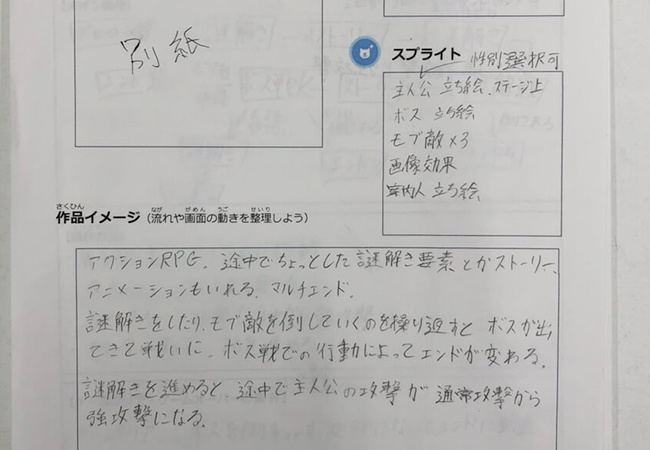 別紙
スプライト 性別選択可
主人公 立ち絵、ステージ上
ボス 立ち絵
モブ敵×3
画像効果
案内人 立ち絵
さくひん なが がめん うご せいり
作品イメージ(流れや画面の動きを整理しよう)
アクションRPG、途中でちょっとした謎解き要素とかストーリー、
アニメーションもいれる。マルチエンド。
謎解きをしたり、モブ敵を倒していくのを繰り返すと ボスが出
てきて戦いに、ボス戦での行動によってエンドが変わる。
謎解きを進めると、途中で主人公の攻撃が 通常攻撃から
強攻撃になる。